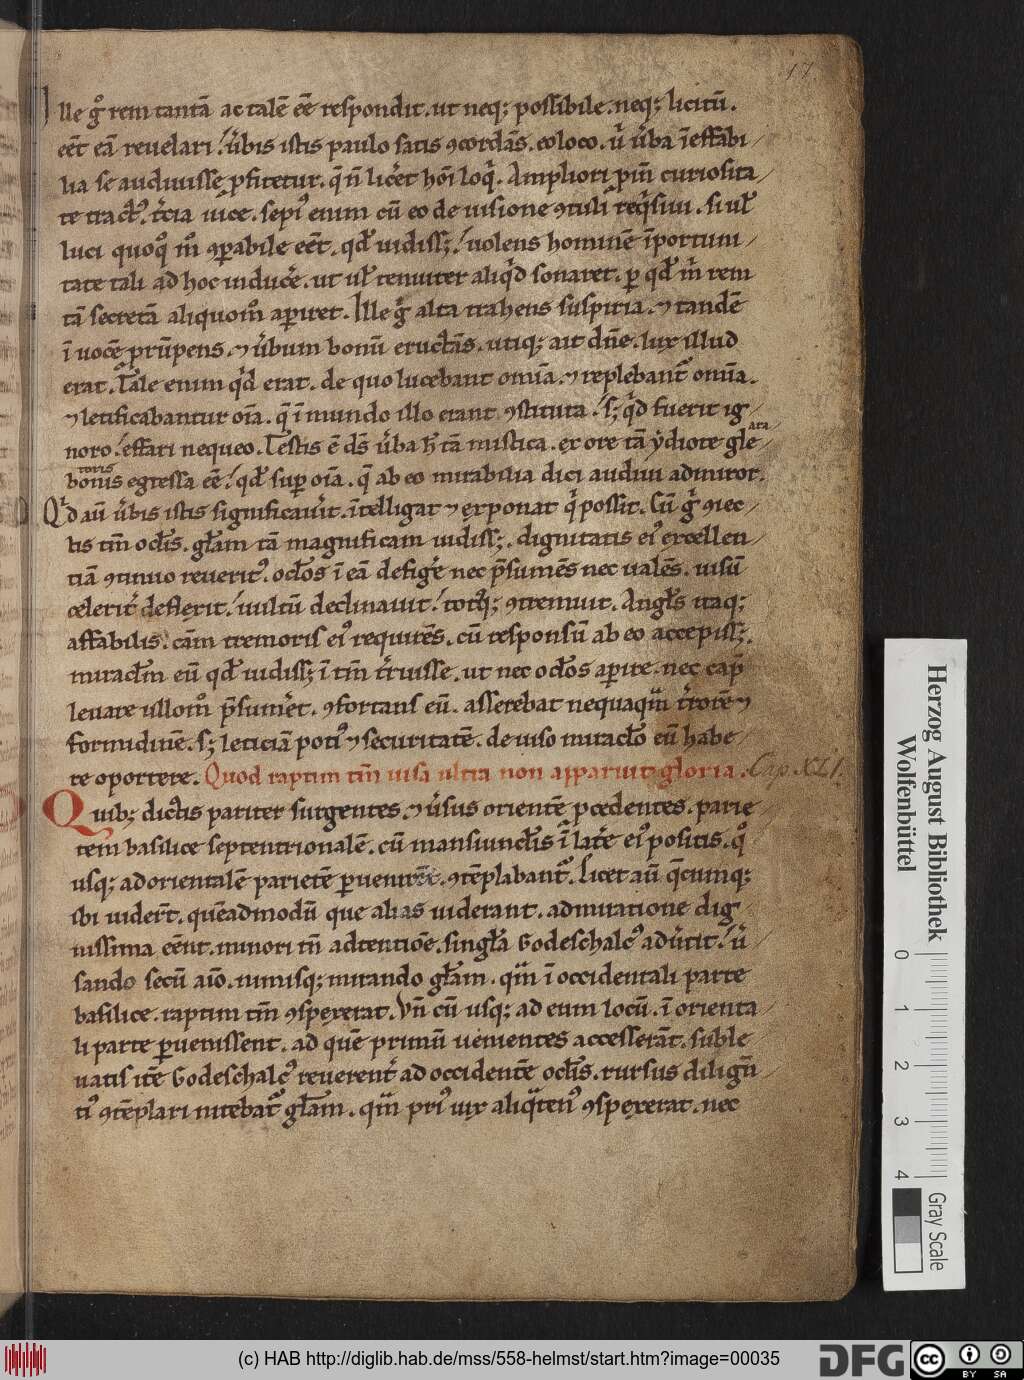 17.
Ille gͦ rem tantā ac talē eē respondit. ut neq; possibile. neq; licitū.
eēt eā reuelari. ūbis istis paulo satis ꝯcordās. eo loco. ū ūba īeffabi
lia se audiuisse ꝓfitetur. q̄ n̄ licēt hoī loqͥ. Ampliori pm̄ curiosita
te tractꝰ. tcia uice. sepiꝰ enim cū eo de uisione ꝯtuli reqͥsiui. si ul̄
luci quoqͦ mͦ ꝯꝑabile eēt. qd̄ uidiss;. uolens hominē īportuni
tate tali ad hoc inducē. ut ul̄ tenuiter aliqͥd sonaret. ꝑ qd̄ m̄ rem
tā secretā aliquomͦ aꝑiret. Ille gͦ alta trahens suspiria. ⁊ tandē
ī uocē prūpens. ⁊ ūbum bonū eructās. utiq; ait dn̄e. lux illud
erat. Tale enim qͥd erat. de quo lucebant omīa. ⁊ replebant̄ omīa.
⁊ letificabantur oīa. q̄ ī mundo illo erant ꝯstituta. s; qͥd fuerit ig
noro. effari nequeo. Testis ē ds̄ ūba h̄ tā mistica. ex ore tā ydiote gle
ata
toris
bonis egressa eē. qd̄ suꝑ oīa. q̄ ab eo mirabilia dici audiui admiror.
Qͥd aū ūbis istis significauīt. ītelligat ⁊ exponat qͥ possit. Cū gͦ ꝯiec
tis tm̄ oclis. glām tā magnificam uidiss;. dignitatis eiꝰ excellen
tiā ꝯtinuo reueritꝰ. oclos ī eā defigē nec p̄sumēs nec ualēs. uisū
celerit̄ deflexit. uultū declinauit. totꝰq; ꝯtremuit. Angls itaq;
affabilis. cām tremoris eiꝰ requirēs. cū responsū ab eo accepiss;.
miraclm eū qd̄ uidiss; ī tm̄ tr̄uisse. ut nec oclos aꝑire. nec cap̄
leuare ullomͦ p̄sumēt. ꝯfortans eū. asserebat nequaqm̄ t̄rorē ⁊
formidinē. s; leticiā potiꝰ ⁊ securitatē. de uiso miraclo eū habe
re oportere. Quod raptim tm̄ uisa ultra non apparuit gloria. Cap. XLI.
Quib; dictis pariter surgentes. ⁊ ūsus orientē ꝓcedentes. parie
tem basilice septentrionalē. cū mansiunclis ī latē eiꝰ positis. qͦ
usq; ad orientalē parietē ꝑuenirēt. ꝯtēplabant̄. Licet aū q̄cumq;
ibi uidert̄. quēadmodū que alias uiderant. admiratione dig
nissima eēnt. minori tn̄ adtentiōe. singla Godeschalcꝰ adūtit. ū
sando secū aīo. nimisq; mirando glām. qm̄ ī occidentali parte
basilice. raptim tm̄ ꝯspexerat. Vn̄ cū usq; ad eum locū. ī orienta
li parte ꝑuenissent. ad quē primū uenientes accesserāt. suble
uatis itē Godeschalcꝰ reuerent̄ ad occidentē oclis. rursus diligū
tiꝰ ꝯtēplari nitebat̄ glām. qm̄ priꝰ uix aliqͣtenꝰ ꝯspexerat. nec
Herzog August Bibliothek
Wolfenbüttel
0 1 2 3 4
Gray Scale
(c) HAB http://diglib.hab.de/mss/558-helmst/start.htm?image=00035
DFG
cc BY SA